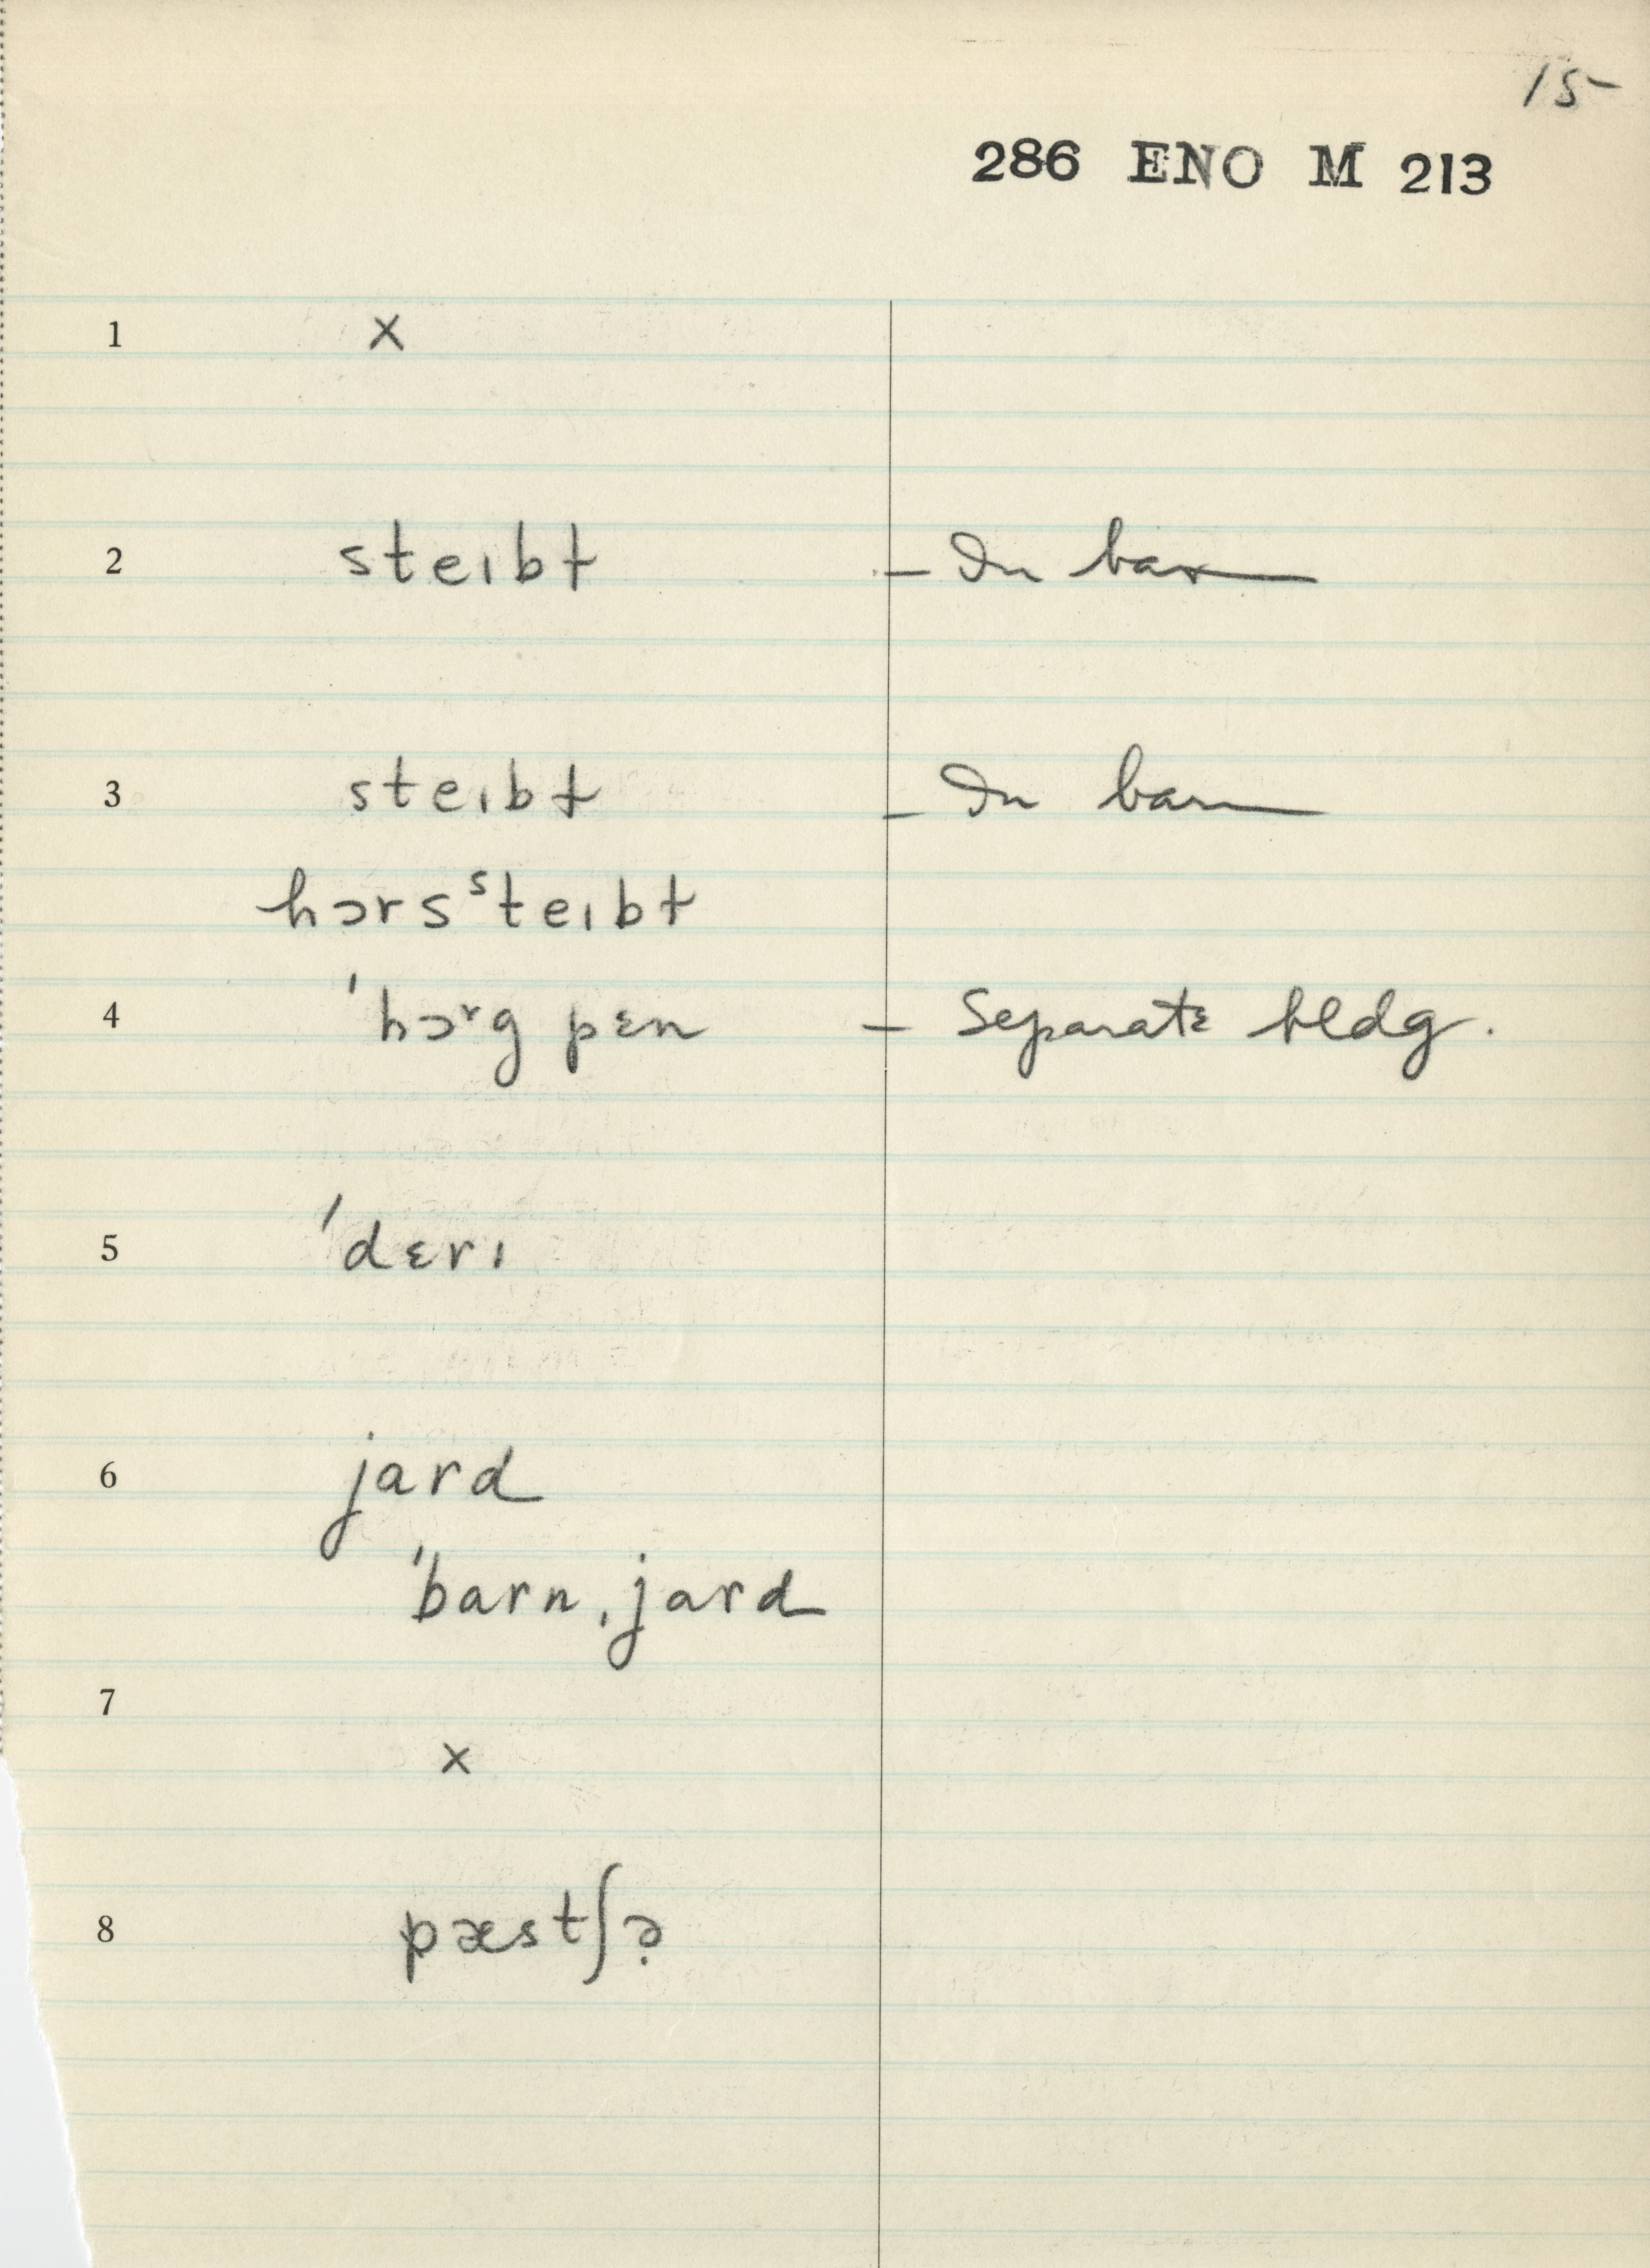 15-
286 ENO M 213
1 x
2 steɪbɫ – In barn
3 steɪbɫ – In barn
hɔrsˢteɪbɫ
4 ˈhɔʳg pɛn – Separate bldg.
5 ˈdɛrɪ
6 jard
ˈbarnˌjard
7
x
8 pæstʃə̣